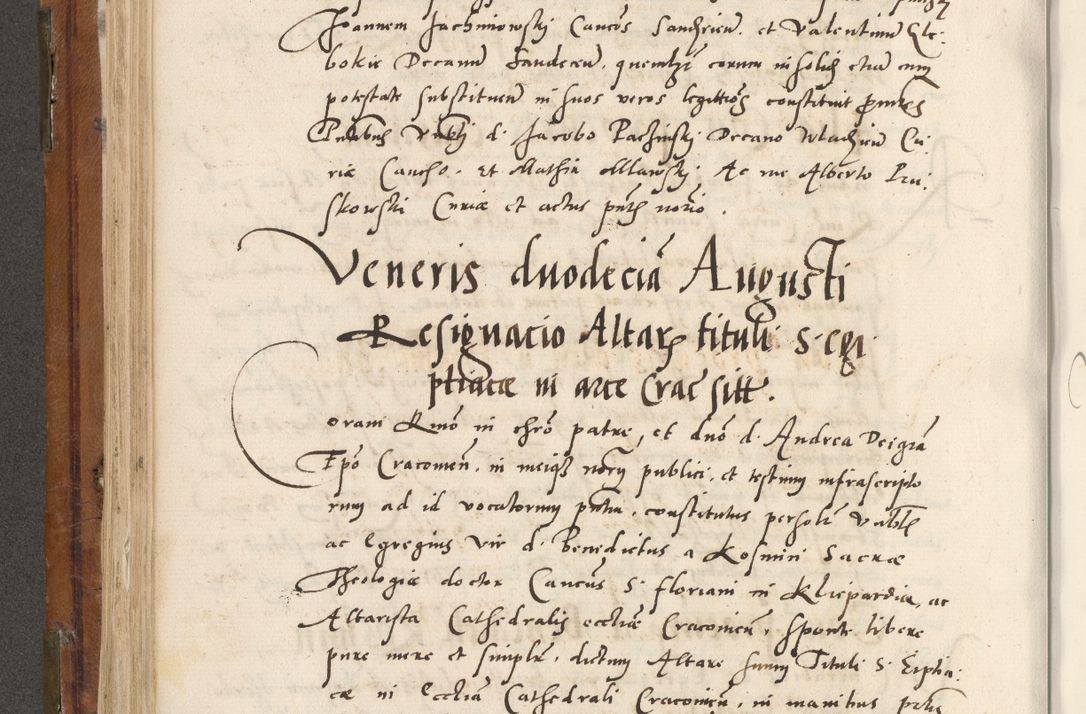 Joannem Jachimowsky Cancos Sandzien. et Valentinu Gle-
bokie Decanu Sandecen. quemlz eorum in solid etia cum
potestate substituen in suos veros legittios constituit prntes
Prntibus Vnbli d. Jacobo Paczinsky Decano Wladzien Cu-
rie Cancho. et Mathia Mlawsky. Ac me Alberto Pru-
skowsky Curiae et actus pnti norio.
Veneris duodecia Augusti
Resignacio Altaris tituli S. Egi-
ptiacae in arce Crac sitt.
Coram Rmo in chro patre, et dno d. Andrea Dei gra
Epo Cracouien. in meiqz nory publici, et testium infrascripto
rum ad id vocatorum pntia. constitutus personlr Vnblis
ac Egregius vir d. Benedictus a Kosmin Sacrae
Theologiae doctor Cancus S. Floriani in Kliepardia, ac
Altarista Cathedralis eccliae Cracouien. sponte libere
pure mere et simplr. dictum Altare suum Tituli S. Eiptia-
cae in Ecclia Cathedrali Cracouien, in manibus prti